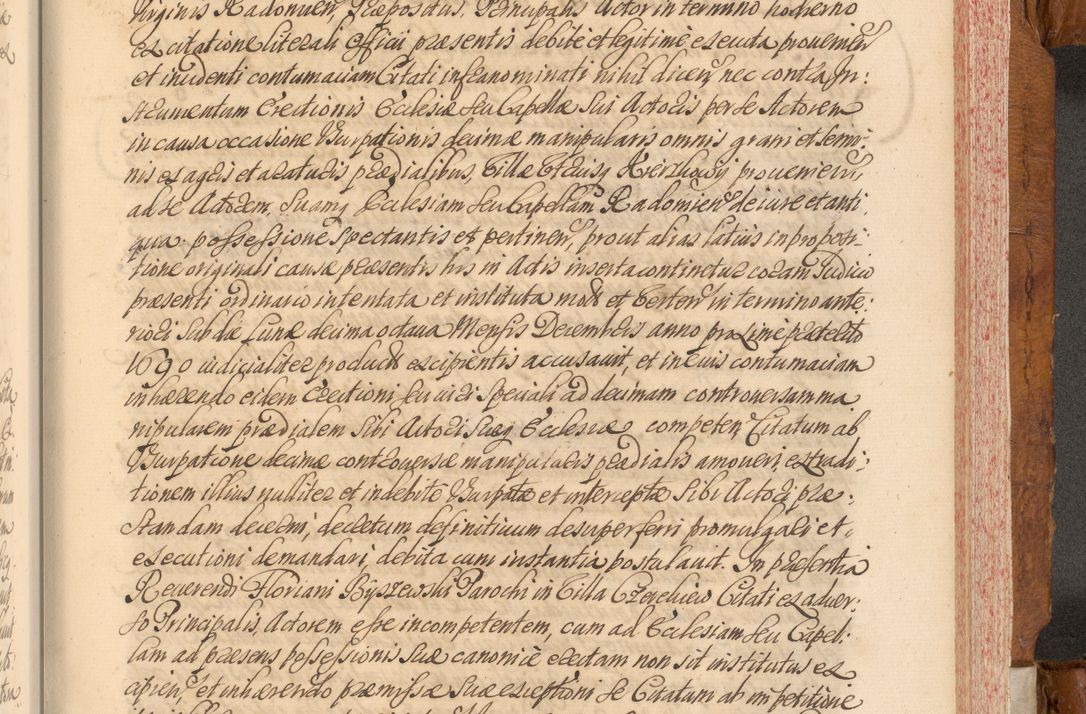 Virginis Radomien, Præpositus, Principalis Actor in termino hodierno
ex citatione literali Officii præsentis debite et legitime executa provenien
et in evidenti contumaciam Citati infranominati nihil dicen, nec contra In:
strumentum Erectionis Ecclesiæ seu Capellæ Sui Actoris per se Actorem
in causa occasione Usurpationis decimæ manipularis omnis grani et semi:
nis ex agris et araturis prædialibus, Villæ provenien
ad se Actorem, Suamq Ecclesiam seu Capellam Radomien de iure et anti,
qua possessione spectantis et pertinen, prout alias latius in proposi:
tione originali causæ præsentis his in Actis inserta continetur coram Iudicio
præsenti ordinario intentata et instituta mods et Verten in termino ante:
riori sub die Lunæ decima octava Mensis Decembris anno proxime præterito
1690 iudicialiter product excipientis accusavit, et in eius contumaciam
inhærendo eidem Erectioni seu iuri speciali ad decimam controversam ma
nipularem prædialem Sibi Actori Suæq Ecclesiæ competen, Citatum ab
Usurpatione decimæ controversæ manipularis prædialis amoveri, extradi:
tionem illius nulliter et indebite Usurpatæ et interceptæ Sibi Actori præ:
standam decerni, decretum definitivum desuper ferri promulgari et
executioni demandari, debita cum instantia postulavit. In præsentia
Reverendi Floriani Byszewski Parochi in Villa Citati ex adver:
so Principalis, Actorem esse incompetentem, cum ad Ecclesiam seu Capel:
lam ad præsens possessionis suæ canonice erectam non sit institutus ex
cipien, et inhærendo præmissæ suæ exceptioni se Citatum ab impetitione